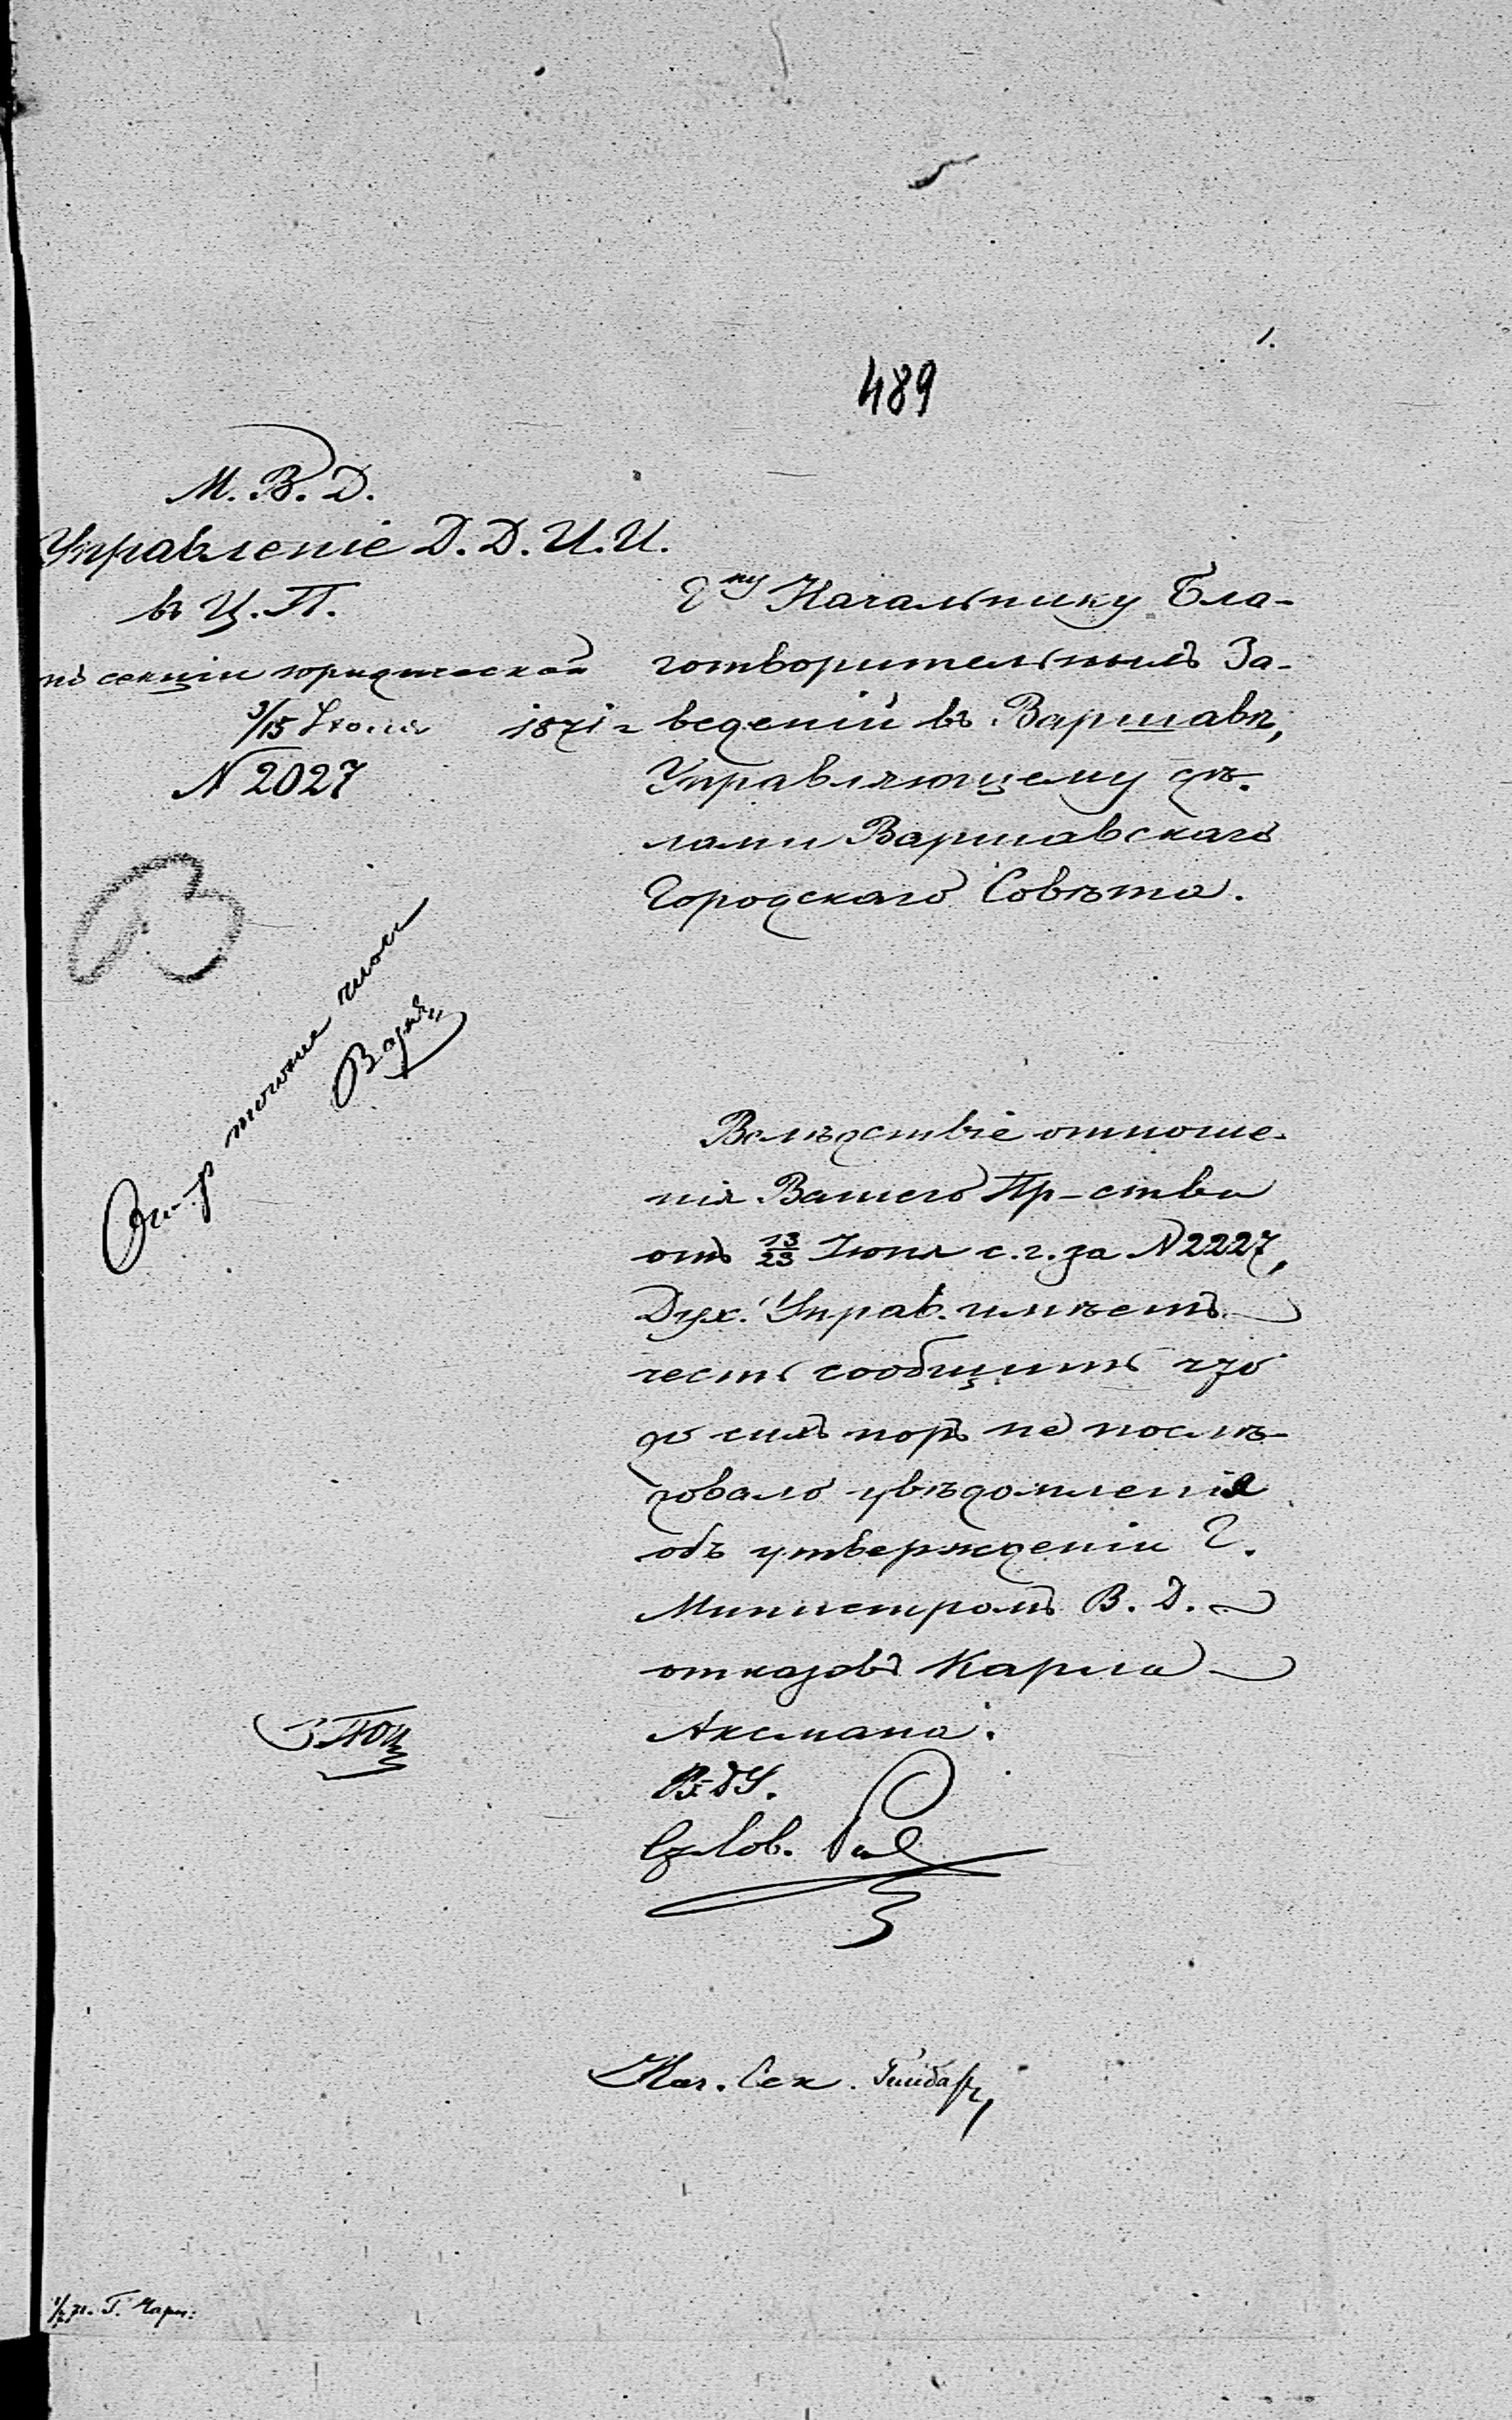 1.
489
М. В. Д.
Управленіе Д. Д. И. И.
въ Ц. П.
по секціи юридической
3/15 Іюля 1871 г
№ 2027
Г ну Начальнику Бла-
готворительныхъ За-
веденій въ Варшавѣ,
Управляющему дѣ-
лами Варшавскаго
Городскаго Совѣта.
Вслѣдствіе отноше-
нія Вашего Пр-ства
отъ 13/25 Іюня с. г. за № 2227,
Дух. Управ. имѣетъ
честь сообщить что
до сихъ поръ не послѣ-
довало увѣдомленія
объ утвержденіи Г.
Министромъ В. Д.
отказовъ Карла
Аксмана.
Нач. Сек.